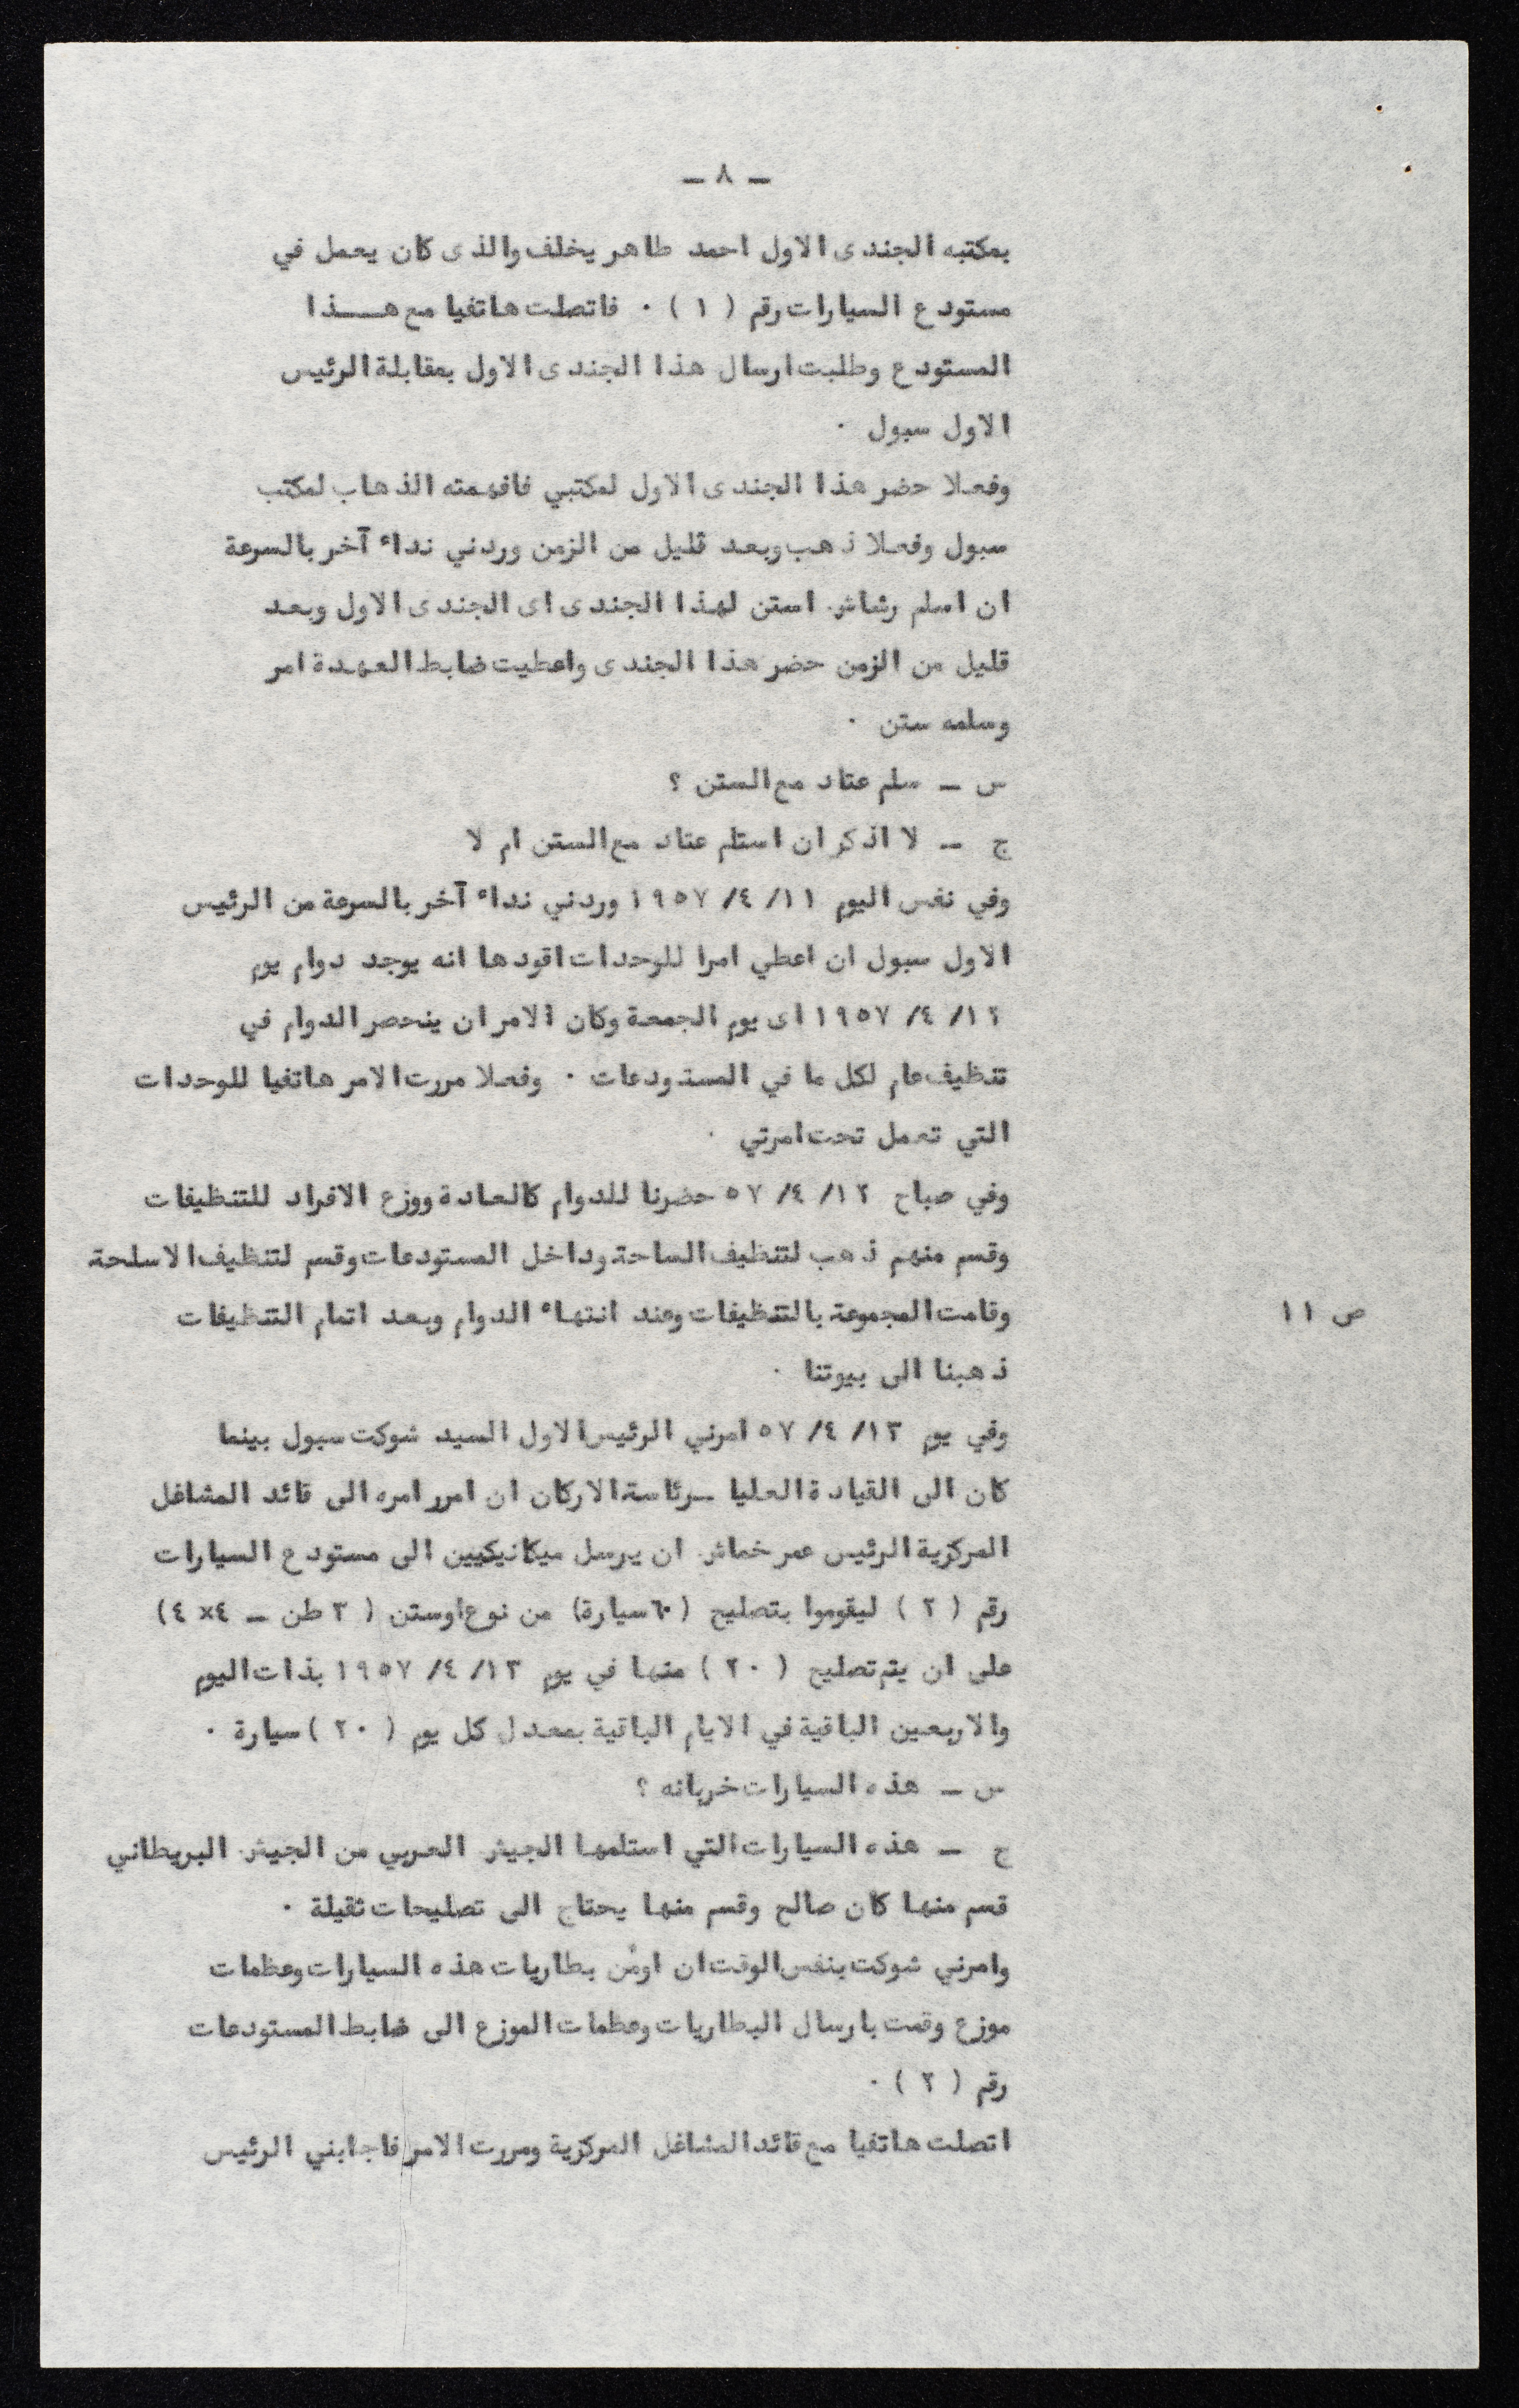 — ٨ —
بمكتبه الجندى الاول احمد طاهر يخلف والذى كان يعمل في
مستودع السيارات رقم ( ١ ) ٠ فاتصلت هاتفيا مع هـــذا
المستودع وطلبت ارسال هذا الجندى الاول بمقابلة الرئيس
الاول سبول ٠
وفعلا حضر هذا الجندى الاول لمكتبي فافهمته الذهاب لمكتب
سبول وفعلا ذهب وبعد قليل من الزمن وردني نداء آخر بالسرعة
ان اسلم رشاش استن لهذا الجندى اى الجندى الاول وبعد
قليل من الزمن حضر هذا الجندى واعطيت ضابط العهدة امر
وسلمه ستن ٠
س — سلم عتاد مع الستن ؟
ج — لا اذكر ان استلم عتاد مع الستن ام لا
وفي نفس اليوم ١١/ ٤/ ١٩٥٧ وردني نداء آخر بالسرعة من الرئيس
الاول سبول ان اعطي امرا للوحدات اقودها انه يوجد دوام يوم
١٢/ ٤/ ١٩٥٧ اى يوم الجمعة وكان الامر ان ينحصر الدوام في
تنظيف عام لكل ما في المستودعات ٠ وفعلا مررت الامر هاتفيا للوحدات
التي تعمل تحت امرتي ٠
وفي صباح ١٢/ ٤/ ٥٧ حضرنا للدوام كالعادة ووزع الافراد للتنظيفات
وقسم منهم ذهب لتنظيف الساحة وداخل المستودعات وقسم لتنظيف الاسلحة
ص ١١ وقامت المجموعة بالتنظيفات وعند انتهاء الدوام وبعد اتمام التنظيفات
ذهبنا الى بيوتنا ٠
وفي يوم ١٣/ ٤/ ٥٧ امرني الرئيس الاول السيد شوكت سبول بينما
كان الى القيادة العليا — رئاسة الاركان ان امرر امره الى قائد المشاغل
المركزية الرئيس عمر خماش ان يرسل ميكانيكيين الى مستودع السيارات
رقم ( ٢ ) ليقوموا بتصليح ( ٦٠ سيارة) من نوع اوستن ( ٣ طن — ٤× ٤)
على ان يتم تصليح ( ٢٠ ) منها في يوم ١٣/ ٤/ ١٩٥٧ بذات اليوم
والاربعين الباقية في الايام الباقية بمعدل كل يوم ( ٢٠ ) سيارة ٠
س — هذه السيارات خربانه ؟
ج — هذه السيارات التي استلمها الجيش العربي من الجيش البريطاني
قسم منها كان صالح وقسم منها يحتاج الى تصليحات ثقيلة ٠
وامرني شوكت بنفس الوقت ان اومن بطاريات هذه السيارات وعظمات
موزع وقمت بارسال البطاريات وعظمات الموزع الى ضابط المستودعات
رقم ( ٢ ) ٠
اتصلت هاتفيا مع قائد المشاغل المركزية ومررت الامر فاجابني الرئيس